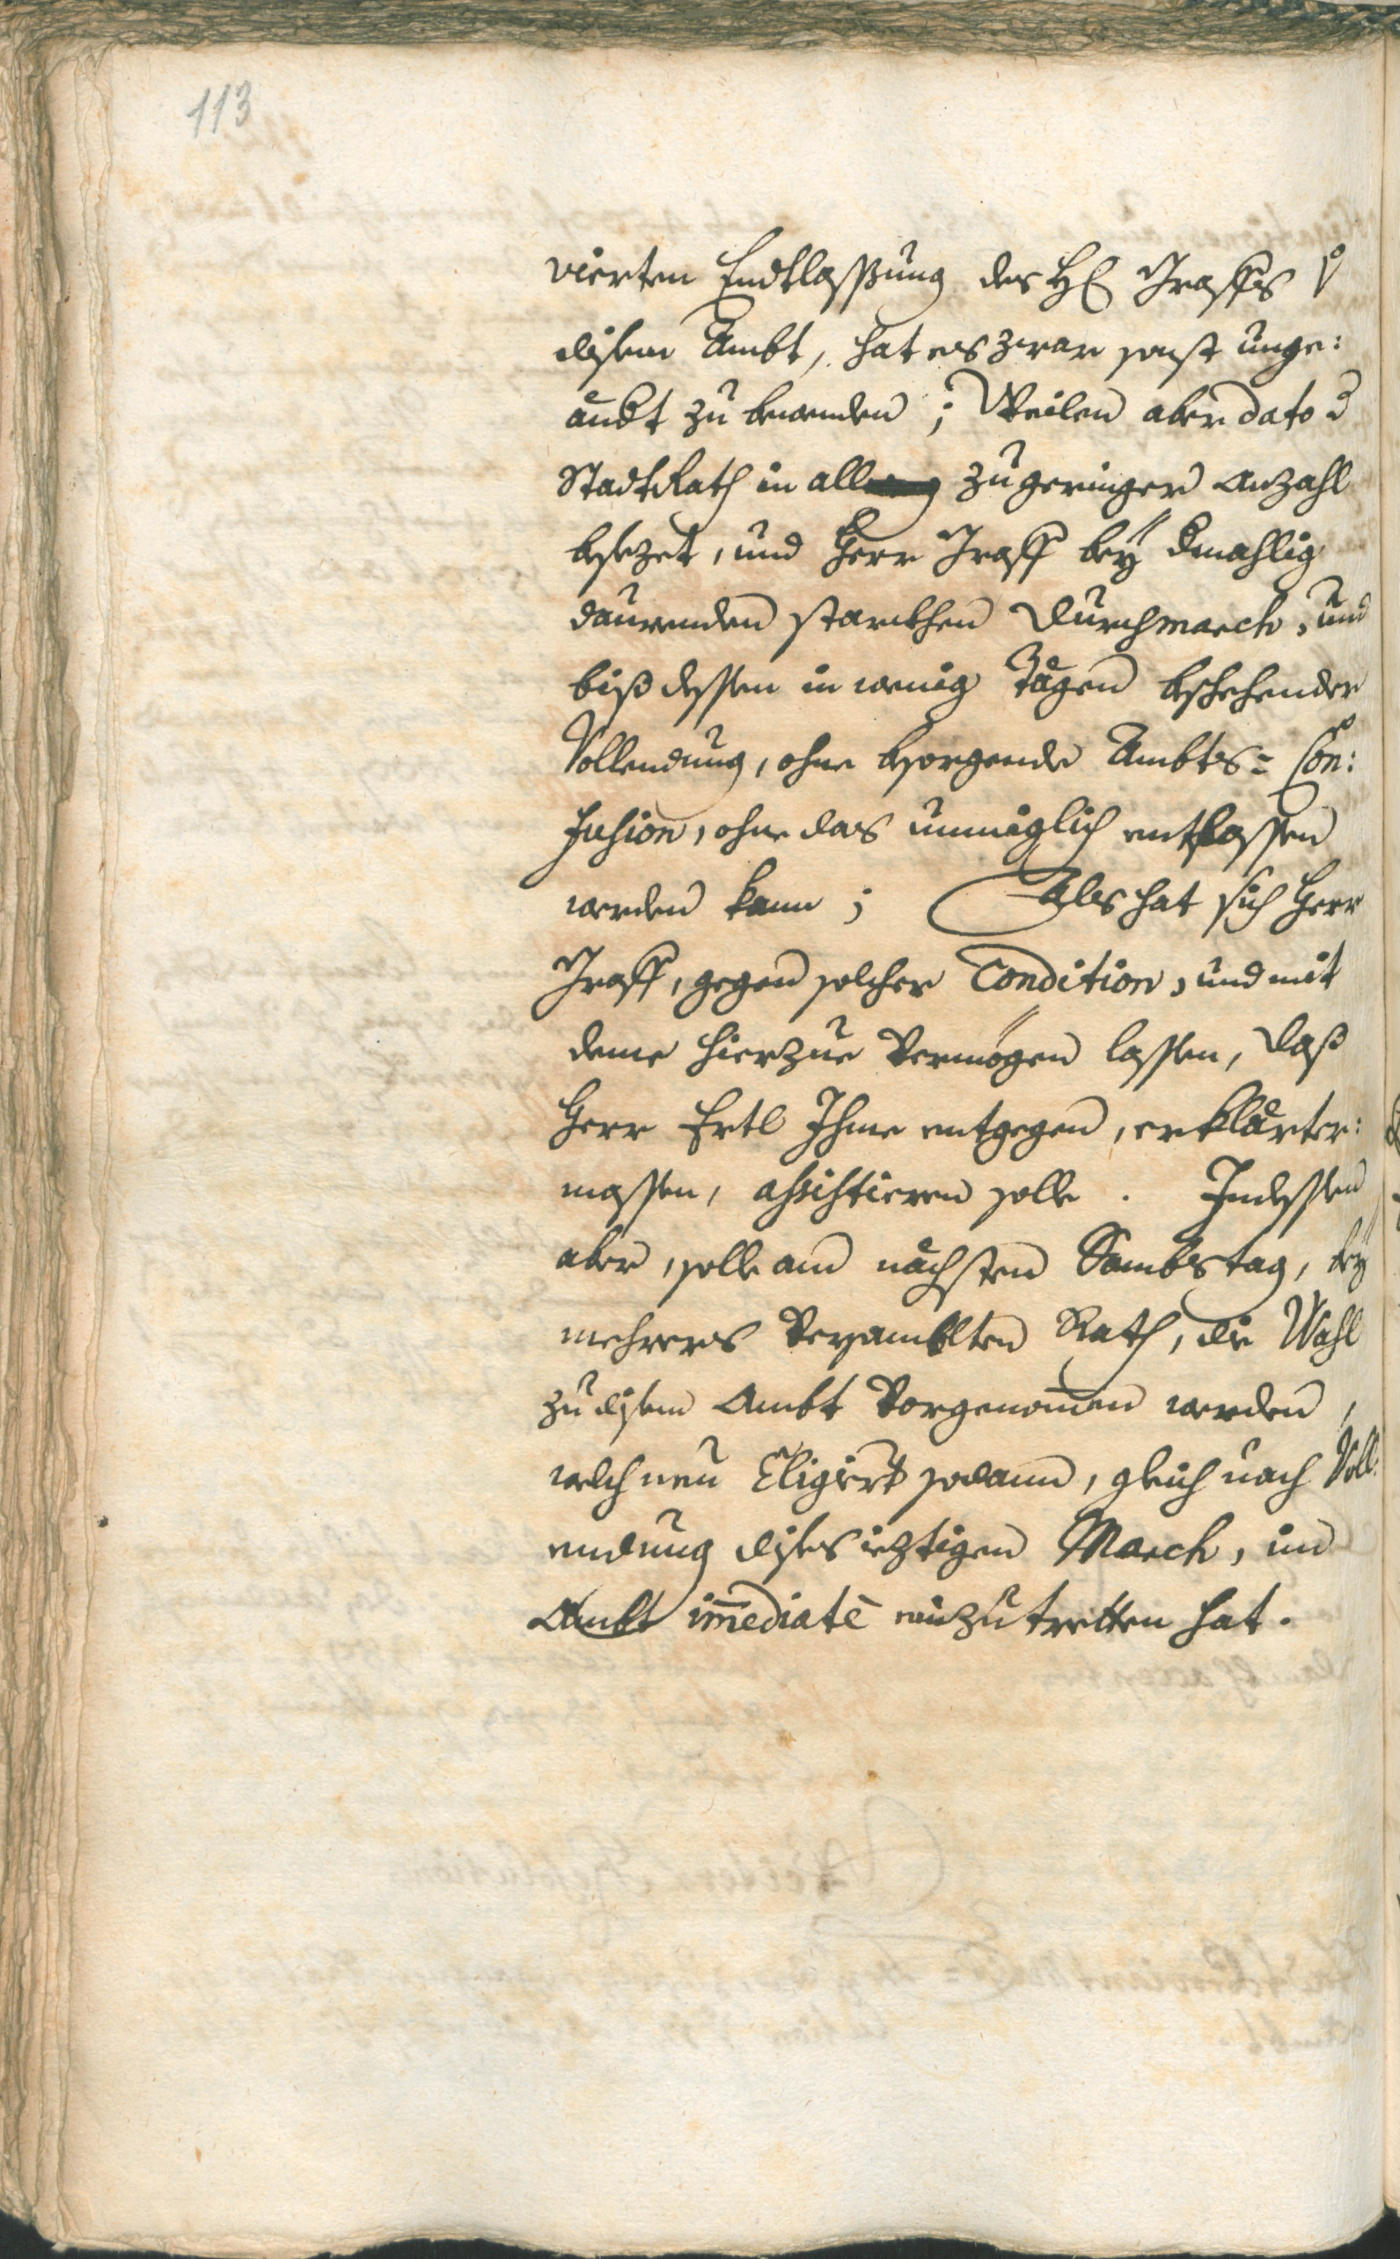 113
vierten Endtlassung des H: Graffs v
disem Ambt, hat es zwar sonst unge:
andt zu bewenden; Weilen aber dato d
Stadt Rath in all zu geringer Anzahl
besezet, und Herr Graff bey dmahlig
daurenden starckhen Durchmarch, und
biß dessen in wenig Tägen beschehender
Vollendung, ohne besorgende Ambts= Con:
fusion, ohne das unmöglich entlassen
werden kann; Als hat sich Herr
Graff, gegen solcher Condition, und mit
deme hierzue Vermögen lassen, daß
Herr Ertl Ihme entgegen, erklärter:
massen, assistieren solle. Indessen
aber, solle am nächsten Sambstag, bey
mehrers Versambleten Rath, die Wahl
zu disem Ambt Vorgenomen werden,
welch neu Eligirt sodann, gleich nach Voll:
endung dises ieztigen March, in
Ambt imediatè einzutretten hat.